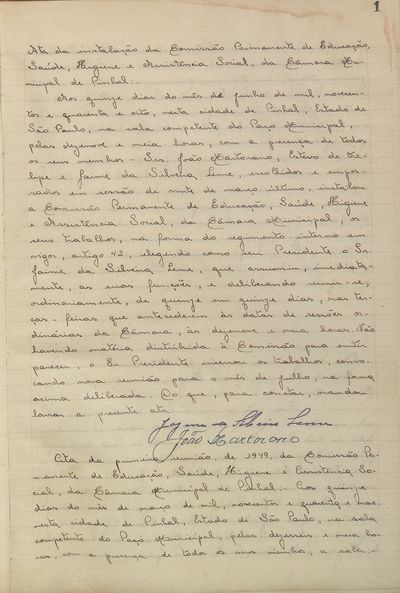 1
Ata da instalação da Comissão Permanente de Educação,
Saúde, Higiene e Assistência Social, da Câmara Mu-
nicipal de Pinhal.:
Aos quinze dias do mês de junho de mil, novecen-
tos e quarenta e oito, nesta cidade de Pinhal, Estado de
São Paulo, na sala competente do Paço Municipal,
pelas dezenove e meia horas, com a presença de todos
os seus membros - Srs. João Martorano, Ester de Fe-
lipe e Jaime da Silveira Leme, escolhidos e empos-
sados em sessão de vinte de março último, instalou
a Comissão Permanente de Educação, Saúde, Higiene
e Assistência Social, da Câmara Municipal, os
seus trabalhos, na forma do regimento interno em
vigor, artigo 42, elegendo como seu Presidente o Sr.
Jaime da Silveira Leme, que assumiu, imediata-
mente, as suas funções, e deliberando reunir-se,
ordinariamente, de quinze em quinze dias, nas ter-
ças-feiras que antecederem às datas de sessões or-
dinárias da Câmara, às dezenove e meia horas. Não
havendo matéria distribuída à Comissão para emitir
parecer, o Sr. Presidente encerrou os trabalhos, convo-
cando nova reunião para o mês de julho, na forma
acima deliberada. Do que, para constar, mandou
lavrar a presente ata.
Silveira Leme
João Martorano
Ata da primeira reunião de 1949, da Comissão Per-
manente de Educação, Saúde, Higiene e Assistência So-
cial, da Câmara Municipal de Pinhal.: Aos quinze
dias do mês de março de mil, novecentos e quarenta e nove,
nesta cidade de Pinhal, Estado de São Paulo, na sala
competente do Paço Municipal, pelas dezesseis e meia ho-
ras, com a presença de todos os seus membros, a saber:-